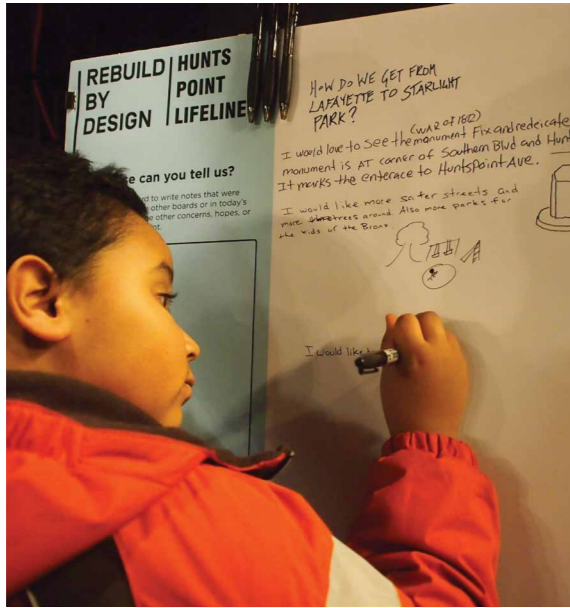 REBUILD
BY
DESIGN
HUNTS
POINT
LIFELINE
e can you tell us?
rd to write notes that were
other boards or in today's
e other concerns, hopes, or
nt.
HOW DO WE GET FROM
LAFAYETTE TO STARLIGHT
PARK?
(WAR OF 1812)
I would love to see the monument Fix and rededicate
monument is AT corner of Southern Blvd and Hunt
It marks the enterace to HuntsPoint Ave.
I would like more safer streets and
more trees around. Also more parks for
the kids of the Bronx.
I would like